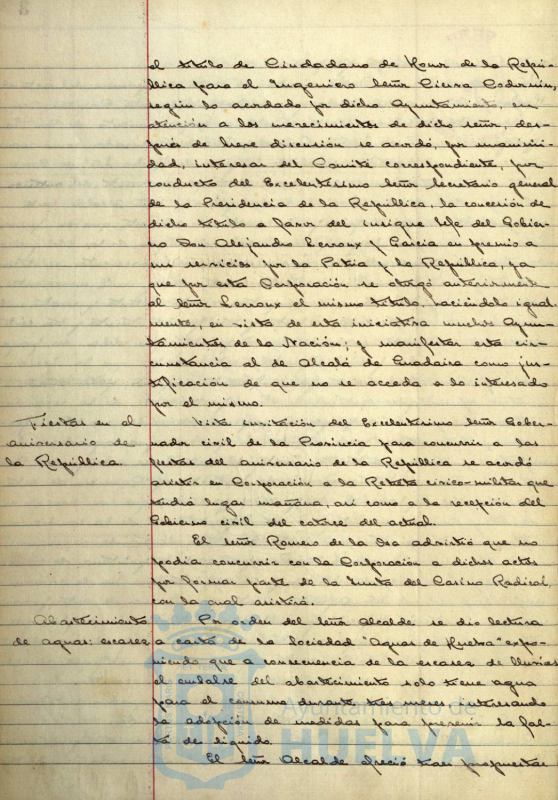 el título de Ciudadano de Honor de la Repú-
blica para el Ingeniero Señor Cierva Codorniu,
según lo acordado por dicho Ayuntamiento, en
atención a los merecimientos de dicho señor, des-
pués de breve discusión se acordó, por unanimi-
dad, interesar del Comité correspondiente, por
conducto del Excelentísimo Señor Secretario general
de la Presidencia de la República, la concesión de
dicho título a favor del insigne Jefe del Gobier-
no Don Alejandro Lerroux y García en premio a
sus servicios por la Patria y la República, ya
que por esta Corporación se otorgó anteriorment
al Señor Lerroux el mismo título, haciéndolo igual-
mente, en vista de esta iniciativa muchos Ayun-
tamientos de la Nación; y manifestar esta cir-
cunstancia al de Alcalá de Guadaira como jus-
tificación de que no se acceda a lo interesado
por el mismo.
Fiestas en el
aniversario de
la República.
Vista invitación del Excelentísimo Señor Gober-
nador civil de la Provincia para concurrir a las
fiestas del aniversario de la República se acordó
asistir en Corporación a la Retreta cívico-militar que
tendrá lugar mañana, así como a la recepción del
Gobierno civil del catorce del actual.
El Señor Romero de la Osa advirtió que no
podía concurrir con la Corporación a dichos actos
por formar parte de la Junta del Casino Radical,
con la cual asistirá.
Abastecimiento
de aguas: escasez
Por orden del Señor Alcalde se dio lectura
a carta de la Sociedad "Aguas de Huelva" expo-
niendo que a consecuencia de la escasez de lluvias
el embalse del abastecimiento solo tiene agua
para el consumo durante tres meses interesando
la adopción de medidas para prevenir la fal-
ta de líquido.
El Señor Alcalde ofreció traer propuestas
Ayuntamiento de
HUELVA